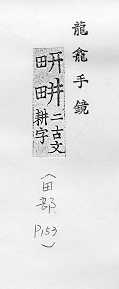 龍龕手鏡
畊二古文耕字
(田部 P153)